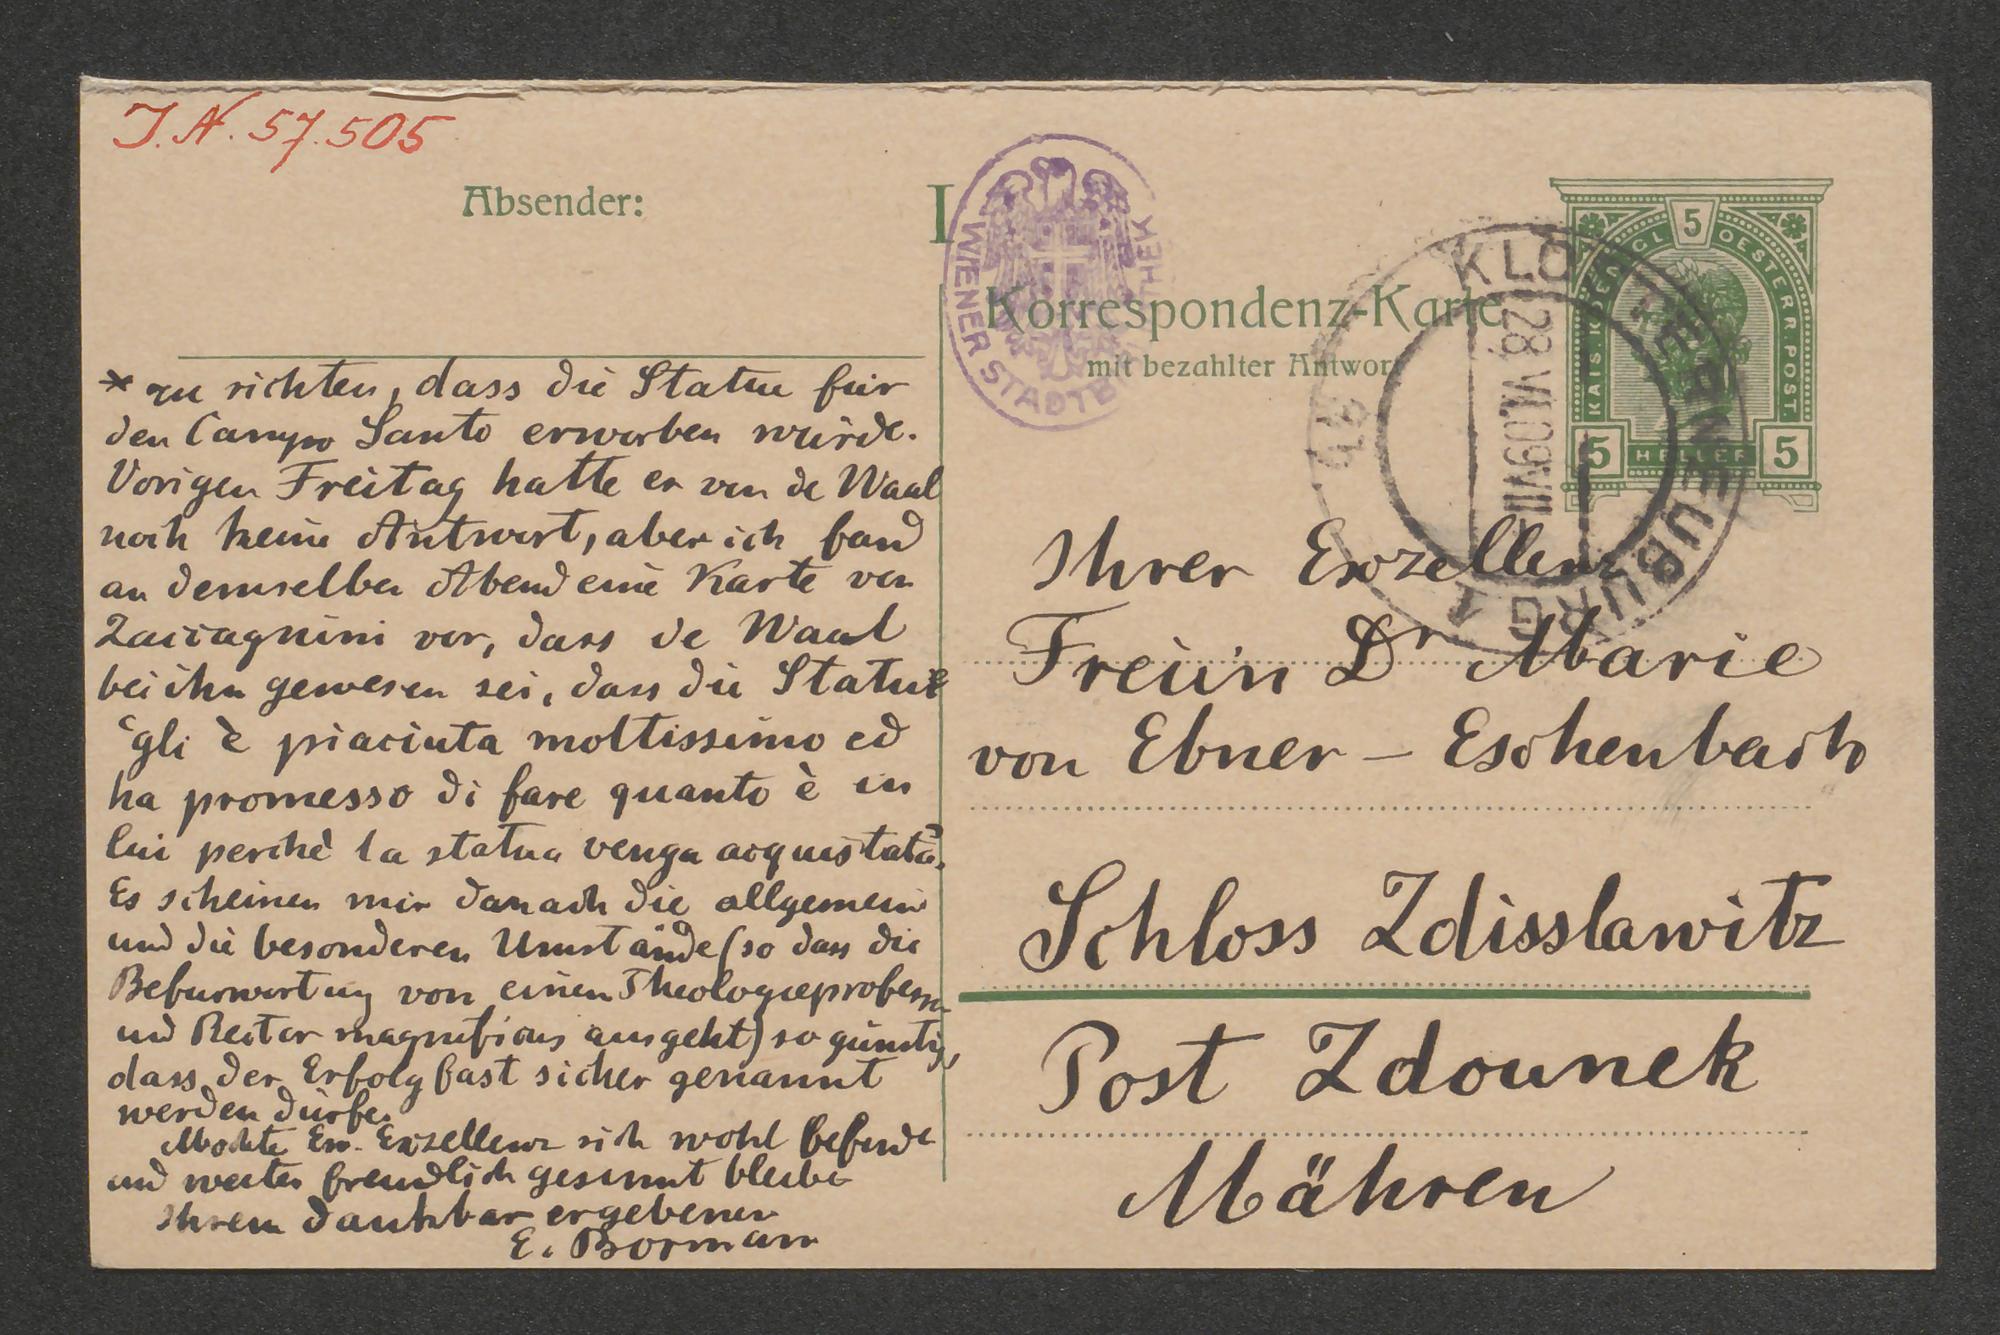 J.N. 57.505
Absender:
I
WIENER STADTB THEK
Korrespondenz-Karte
mit bezahlter Antwort
KAIS. KOENIGL OESTERR. POST
5
5 HELLER 5
KLOSTERNEUBURG 1
28.VI.09 VIII
* zu richten, dass die Statue für
den Campo Santo erworben würde.
Vorigen Freitag hatte er von de Waal
noch keine Antwort, aber ich fand
an demselben Abend eine Karte von
Zaccagnini vor, dass de Waal
bei ihm gewesen sei, dass die Statue
gli è piaciuta moltissimo ed
ha promesso di fare quanto è in
lui perchè la statua venga acquistata.
Es scheinen mir danach die allgemeinen
und die besonderen Umstände (so dass die
Befürwortung von einem Theologieprofessor
und Rector magnificus ausgeht) so günstig,
dass der Erfolg fast sicher genannt
werden dürfe.
Möchte Ew. Exzellenz sich wohl befinden
und weiter freundlich gesinnt bleiben
Ihrem dankbar ergebenen
E. Bormann
Ihrer Exzellenz
Freiin Dr Marie
von Ebner-Eschenbach
Schloss Zdisslawitz
Post Zdounek
Mähren